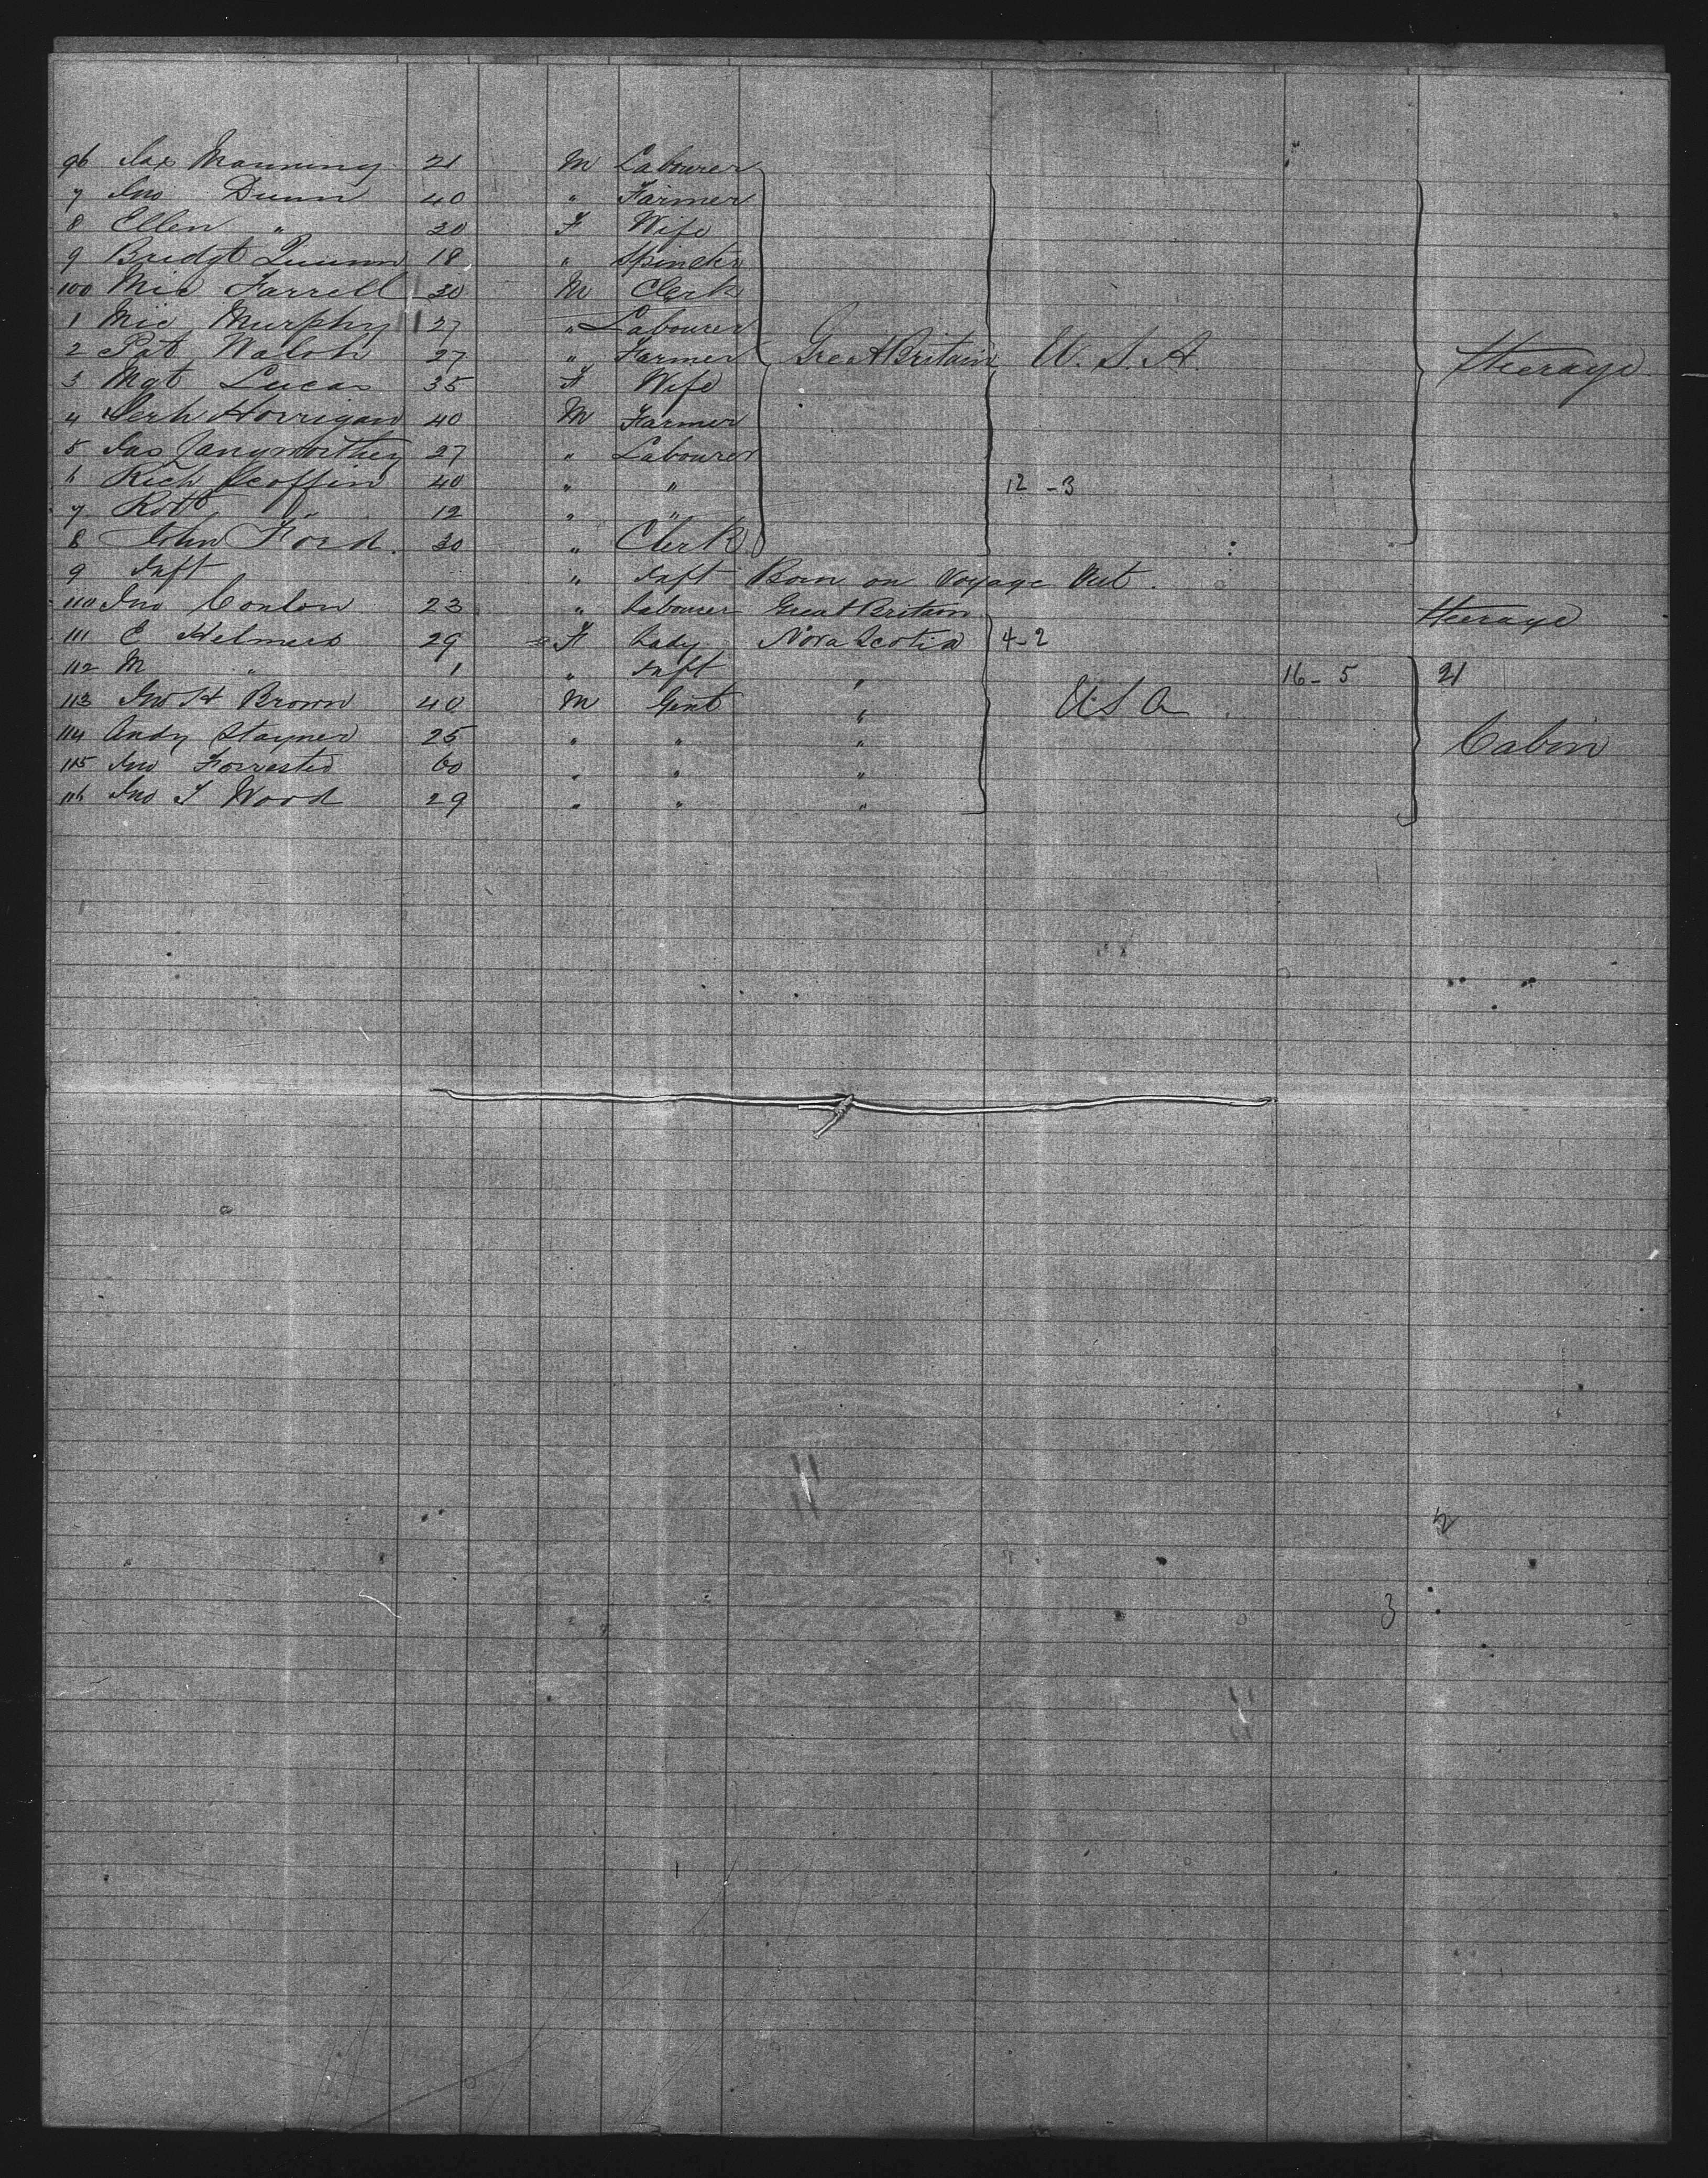 96 Jas Manning 21 M Labourer
7 Jno Dunn 40 " Farmer
8 Ellen " 30 F Wife
9 Bridgt Quinn 18 " Spinster
100 Mic Farrell 30 M Clerk
1 Mic Murphy 27 " Labourer
2 Pat Walsh 27 " Farmer Great Britain U.S.A. Steerage
3 Mgt Lucas 35 F Wife
4 Horrigan 40 M Farmer
5 Jas 27 " Labourer
6 Rich Scoffin 40 " " 12-3
7 Robt " 12 " "
8 John Ford 30 " Clerk
9 Inft " Inft Born on Voyage Out.
110 Jno Conlon 23 " Labourer Great Britain Steerage
111 E Helmers 29 F Lady Nova Scotia 4-2
112 M " 1 " Inft " 16-5 21
113 Jno H Brown 40 M Gent " U S A
114 Andy Stayner 25 " " " Cabin
115 Jno Forrester 60 " " "
116 Jno T Wood 29 " " "
3